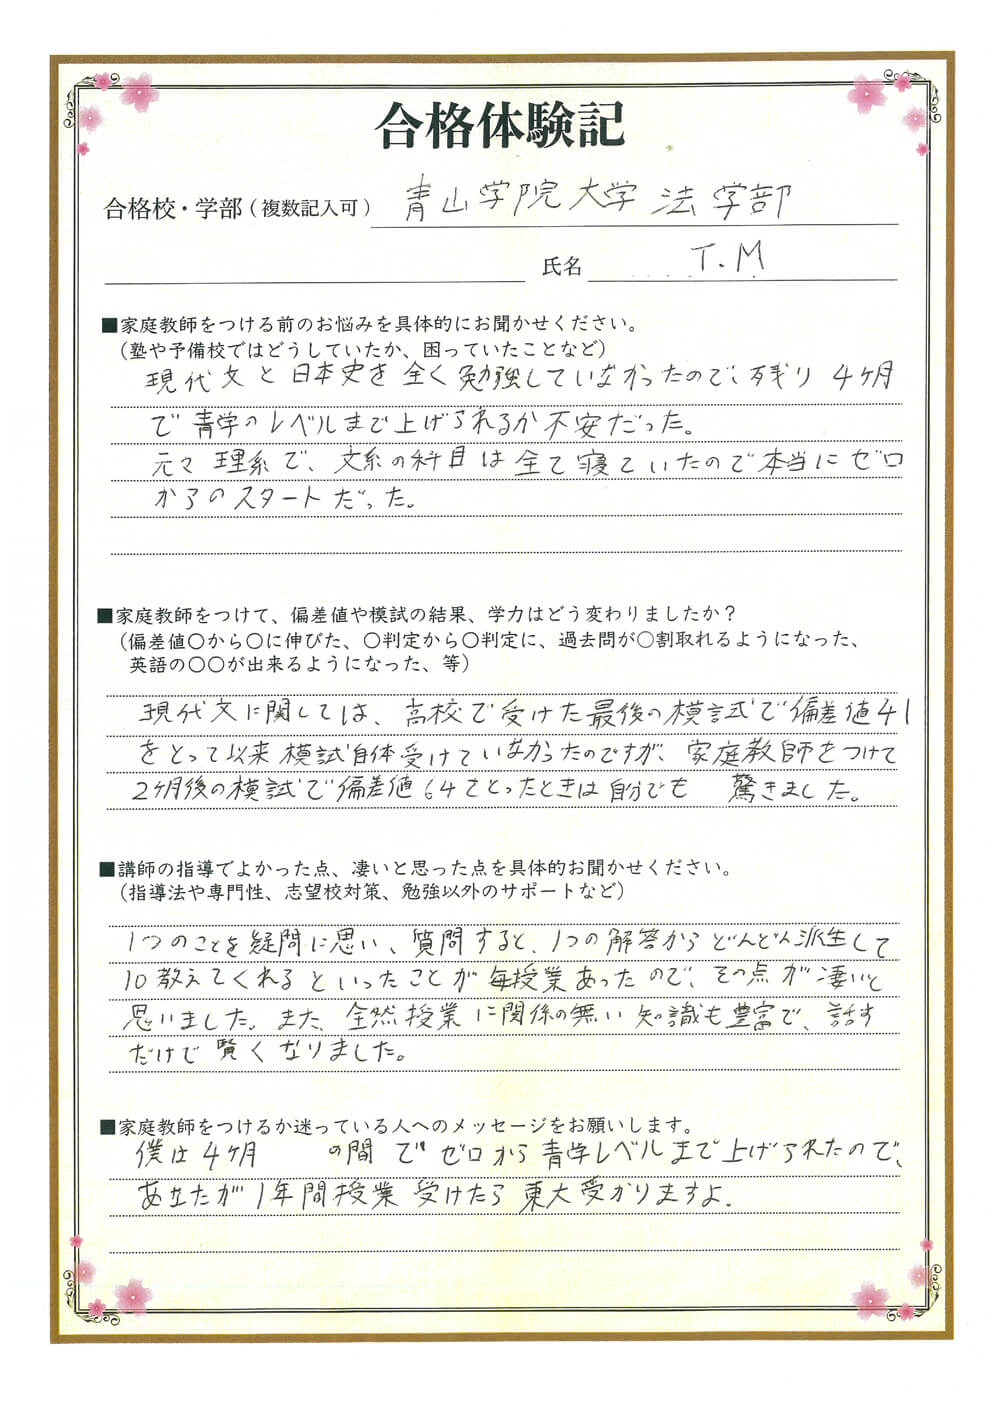 合格体験記
合格校・学部(複数記入可) 青山学院大学 法学部
氏名 T.M
■家庭教師をつける前のお悩みを具体的にお聞かせください。
(塾や予備校ではどうしていたか、困っていたことなど)
現代文と日本史を全く勉強していなかったので、残り4ヶ月
で青学のレベルまで上げられるか不安だった。
元々理系で、文系の科目は全て寝ていたので本当にゼロ
からのスタートだった。
■家庭教師をつけて、偏差値や模試の結果、学力はどう変わりましたか?
(偏差値〇から〇に伸びた、〇判定から〇判定に、過去問が〇割取れるようになった、
英語の〇〇が出来るようになった、等)
現代文に関しては、高校で受けた最後の模試で偏差値41
をとって以来模試自体受けていなかったのですが、家庭教師をつけて
2ヶ月後の模試で偏差値64をとったときは自分でも 驚きました。
■講師の指導でよかった点、凄いと思った点を具体的お聞かせください。
(指導法や専門性、志望校対策、勉強以外のサポートなど)
1つのことを疑問に思い、質問すると、1つの解答からどんどん派生して
10教えてくれるといったことが毎授業あったので、その点が凄いと
思いました。また、全然授業に関係の無い知識も豊富で、話す
だけで賢くなりました。
■家庭教師をつけるか迷っている人へのメッセージをお願いします。
僕は4ヶ月 の間でゼロから青学レベルまで上げられたので、
あなたが1年間授業受けたら東大受かりますよ.